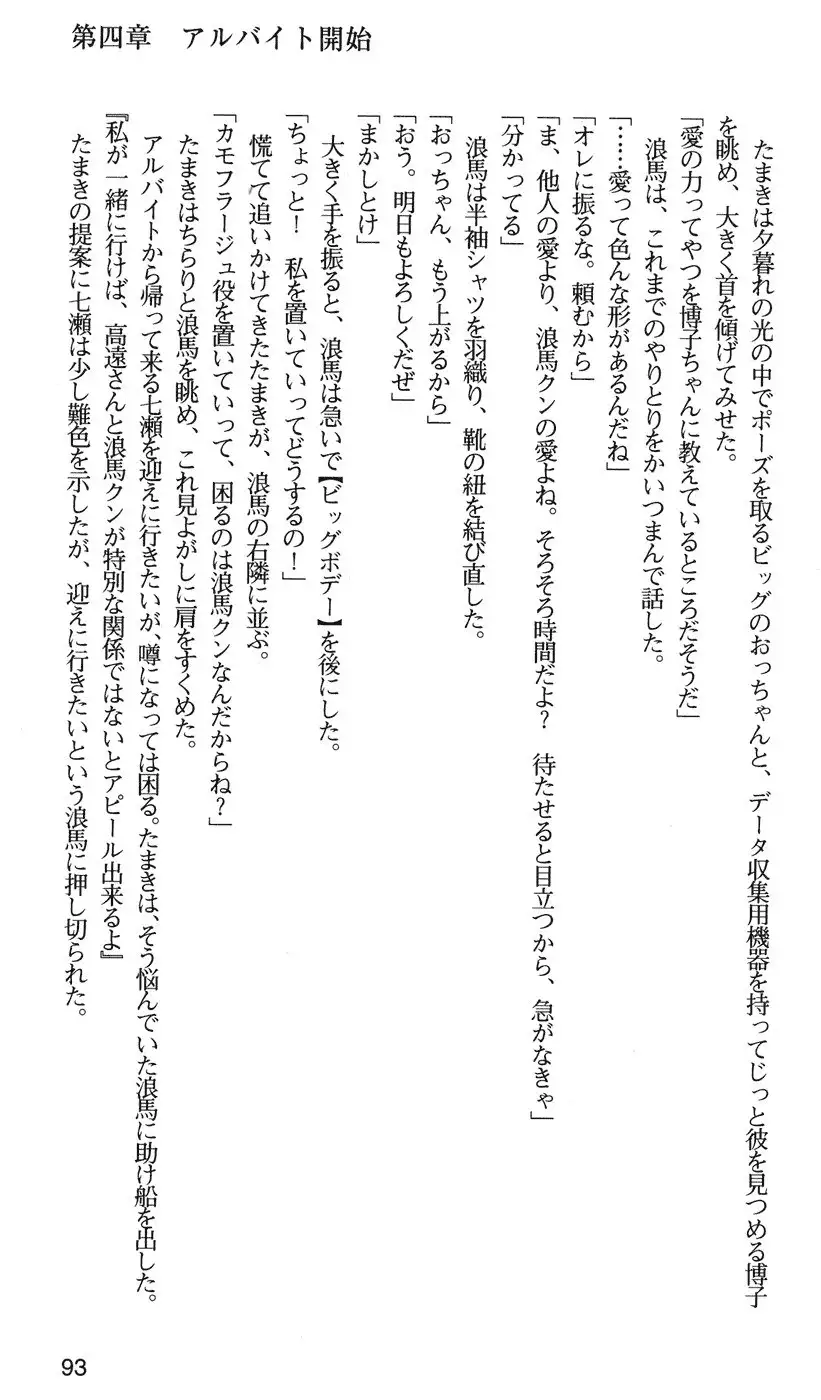 第四章　アルバイト開始
たまきは夕暮れの光の中でポーズを取るビッグのおっちゃんと、データ収集用機器を持ってじっと彼を見つめる博子
を眺め、大きく首を傾げてみせた。
「愛の力ってやつを博子ちゃんに教えているところだそうだ」
浪馬は、これまでのやりとりをかいつまんで話した。
「……愛って色んな形があるんだね」
「オレに振るな。頼むから」
「ま、他人の愛より、浪馬クンの愛よね。そろそろ時間だよ？　待たせると目立つから、急がなきゃ」
「分かってる」
浪馬は半袖シャツを羽織り、靴の紐を結び直した。
「おっちゃん、もう上がるから」
「おう。明日もよろしくだぜ」
「まかしとけ」
大きく手を振ると、浪馬は急いで【ビッグボデー】を後にした。
「ちょっと！　私を置いていってどうするの！」
慌てて追いかけてきたたまきが、浪馬の右隣に並ぶ。
「カモフラージュ役を置いていって、困るのは浪馬クンなんだからね？」
たまきはちらりと浪馬を眺め、これ見よがしに肩をすくめた。
アルバイトから帰って来る七瀬を迎えに行きたいが、噂になっては困る。たまきは、そう悩んでいた浪馬に助け船を出した。
『私が一緒に行けば、高遠さんと浪馬クンが特別な関係ではないとアピール出来るよ』
たまきの提案に七瀬は少し難色を示したが、迎えに行きたいという浪馬に押し切られた。
93